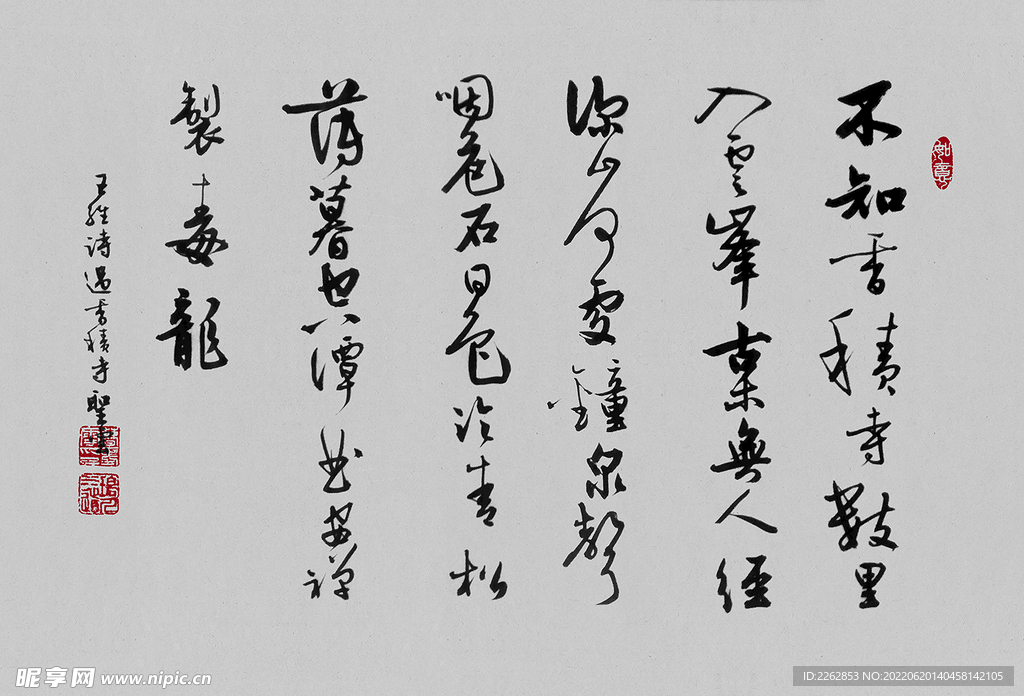 如意
不知香積寺數里
入雲峯古木無人經
深山何處鐘泉聲
咽危石日色冷青松
薄暮空潭曲安禪
製毒龍
王維詩過香積寺聖
昵享网 www.nipic.cn
ID:2262853 NO:20220620140458142105